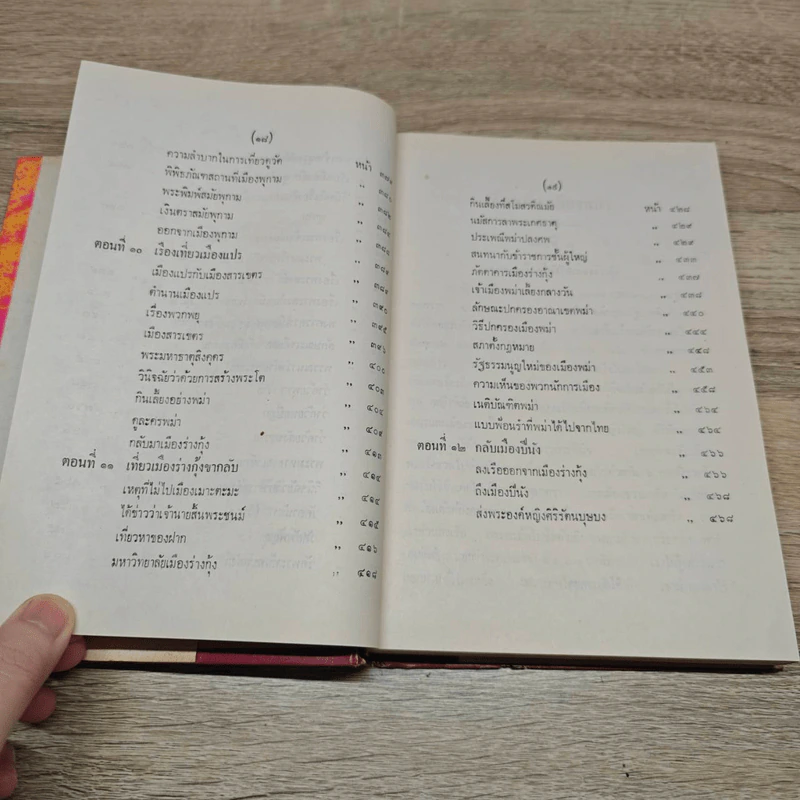 (๑๘)
ความลำบากในการเที่ยวดูวัด หน้า ๓๗๖
พิพิธภัณฑสถานที่เมืองพุกาม ,,
พระพิมพ์สมัยพุกาม ,,
เงินตราสมัยพุกาม ,,
ออกจากเมืองพุกาม ,,
ตอนที่ ๑๐ เรื่องเที่ยวเมืองแปร ,,
เมืองแปรกับเมืองสารเขตร ,,
ตำนานเมืองแปร ,,
เรื่องพวกพยุ ,, ๓๙๐
เมืองสารเขตร ,, ๓๙๕
พระมหาธาตุสิงคุตร ,, ๓๙๖
วินิจฉัยว่าด้วยการสร้างพระโต ,, ๔๐๐
กินเลี้ยงอย่างพม่า ,, ๔๐๓
ดูละครพม่า ,, ๔๐๔
กลับมาเมืองร่างกุ้ง ,, ๔๐๙
ตอนที่ ๑๑ เที่ยวเมืองร่างกุ้งขากลับ ,, ๔๑๓
เหตุที่ไม่ไปเมืองเมาะตะมะ ,, ๔๑๔
ได้ข่าวว่าเจ้านายสิ้นพระชนม์ ,, ๔๑๔
เที่ยวหาของฝาก ,, ๔๑๕
มหาวิทยาลัยเมืองร่างกุ้ง ,, ๔๑๖
,, ๔๑๘
(๑๙)
กินเลี้ยงที่สโมสรกิมมัย หน้า ๔๒๘
นมัสการลาพระเกศธาตุ ,, ๔๒๙
ประเพณีพม่าปลงศพ ,, ๔๒๙
สนทนากับข้าราชการชั้นผู้ใหญ่ ,, ๔๓๓
ภัตตาคารเมืองร่างกุ้ง ,, ๔๓๗
เจ้าเมืองพม่าเลี้ยงกลางวัน ,, ๔๓๘
ลักษณะปกครองอาณาเขตพม่า ,, ๔๔๐
วิธีปกครองเมืองพม่า ,, ๔๔๕
สภาตั้งกฎหมาย ,, ๔๔๘
รัฐธรรมนูญใหม่ของเมืองพม่า ,, ๔๕๓
ความเห็นของพวกนักการเมือง ,, ๔๕๘
เนติบัณฑิตพม่า ,, ๔๖๔
แบบฟ้อนรำที่พม่าได้ไปจากไทย ,, ๔๖๔
ตอนที่ ๑๒ กลับเมืองปีนัง ,, ๔๖๖
ลงเรือออกจากเมืองร่างกุ้ง ,, ๔๖๖
ถึงเมืองปีนัง ,, ๔๖๘
ส่งพระองค์หญิงศิริรัตนบุษบง ,, ๔๖๘